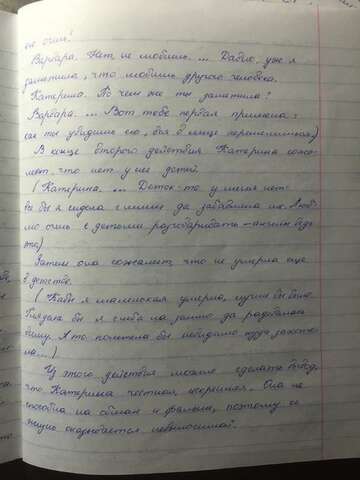 Варвара. Нет, не любишь. ... Давно уж я
заметила, что любишь другого человека.
Катерина. По чем же ты заметила?
Варвара. ... Вот тебе первая примета:
как ты увидишь его, вся в лице переменишься)
В конце второго действия Катерина сожа-
леет, что нет у нее детей.
(Катерина. ... Деток-то у меня нет:
все бы я сидела с ними да забавляла их. Люб-
лю очень с детьми разговаривать – ангелы ведь
это)
Затем она сожалеет, что не умерла еще
в детстве.
(Кабы я маленькая умерла, лучше бы было.
Глядела бы я с неба на землю да радовалась
всему. А то полетела бы невидимо куда захоте-
ла...)
Из этого действия можно сделать вывод,
что Катерина честная, искренняя. Она не
способна на обман и фальшь, поэтому ее
жизнь оказывается невыносимой.